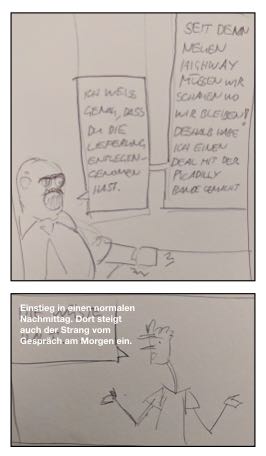 ICH WEIß
GENAU, DASS
DU DIE
LIEFERUNG
ENTGEGEN-
GENOMEN
HAST.
SEIT DEM
NEUEN
HIGHWAY
MÜSSEN WIR
SCHAUEN WO
WIR BLEIBEN!
DESHALB HABE
ICH EINEN
DEAL MIT DER
PICADILLY
BANDE GEMACHT
Einstieg in einen normalen
Nachmittag. Dort steigt
auch der Strang vom
Gespräch am Morgen ein.